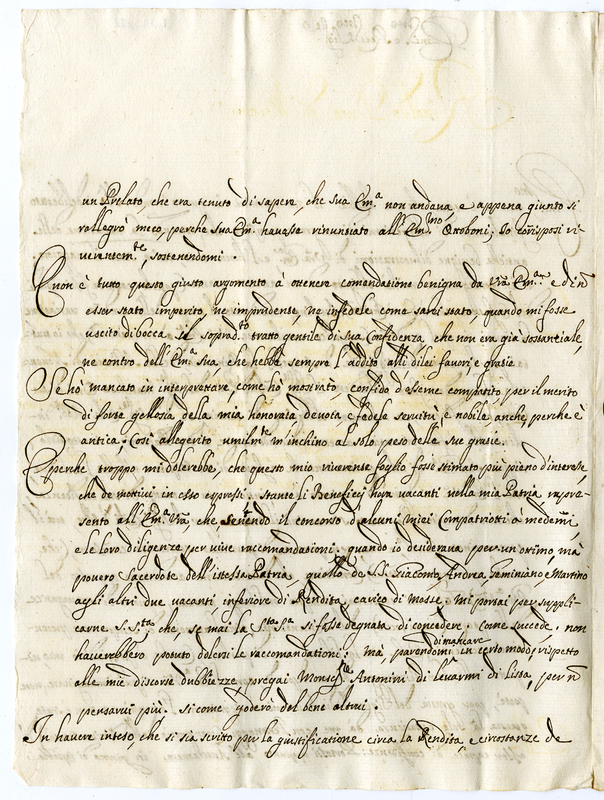 un Prelato, che era tenuto di sapere, che sua Em.ª non andava, e appena giunto si
rallegrò meco, perche sua Em.ª havesse rinuntiato all'Em.mo Ottoboni; Io risposi ri-
verentem.te, sostenendomi.
E non è tutto questo giusto argomento à ottenere comendatione benigna da V.ra Em.ª e di n
esser stato imperito, ne imprudente, ne infedele come sarei stato, quando mi fosse
uscito di bocca il soprad.to tratto gentile di sua Confidenza che non era già sostantiale,
ne contro dell'Em.ª sua, che hebbe sempre l'addito alli di lei favori, e gratie
Se hò mancato in interpretare, come hò mostrato confido d'esserne compatito per il merito
di forte gellosia della mia honorata devota e fedele servitù, e nobile anche, perche è
antica; Così allegerito umilm.te m'inchino al solo peso delle sue gratie.
E perche troppo mi dolerebbe, che questo mio riverente foglio fosse stimato più pieno d'interesse,
che de mottivi in esso espressi. Stante li Beneficij hora vacanti nella mia Patria rapre-
sento all'Em.ª V.ra, che il concorso d'alcuni miei Compatriotti à medemi,
e le loro diligenze per vive raccomandationi, quando io desiderava per un ottimo, mà
povero Sacerdote dell'istessa Patria quello de SS. Giacomo, Andrea, Geminiano, e Martino
agli altri due vacanti, inferiore di Rendita, carico di Messe. Mi portai per suppli-
carne S. S.tà che, se mai la S.tà S.ª si fosse degnata di concedere, come succede, non
haverebbero potuto dolersi le raccomandationi: mà, parendomi dimancare in certo modo, rispetto
alle mie discorse dubbiezze, pregai Mons.re Antonini di levarmi di Lista, per n
pensarvi più. Si come goderò del bene altrui.
In havere inteso, che si sia scritto per la giustificatione circa la Rendita, e circostanze de